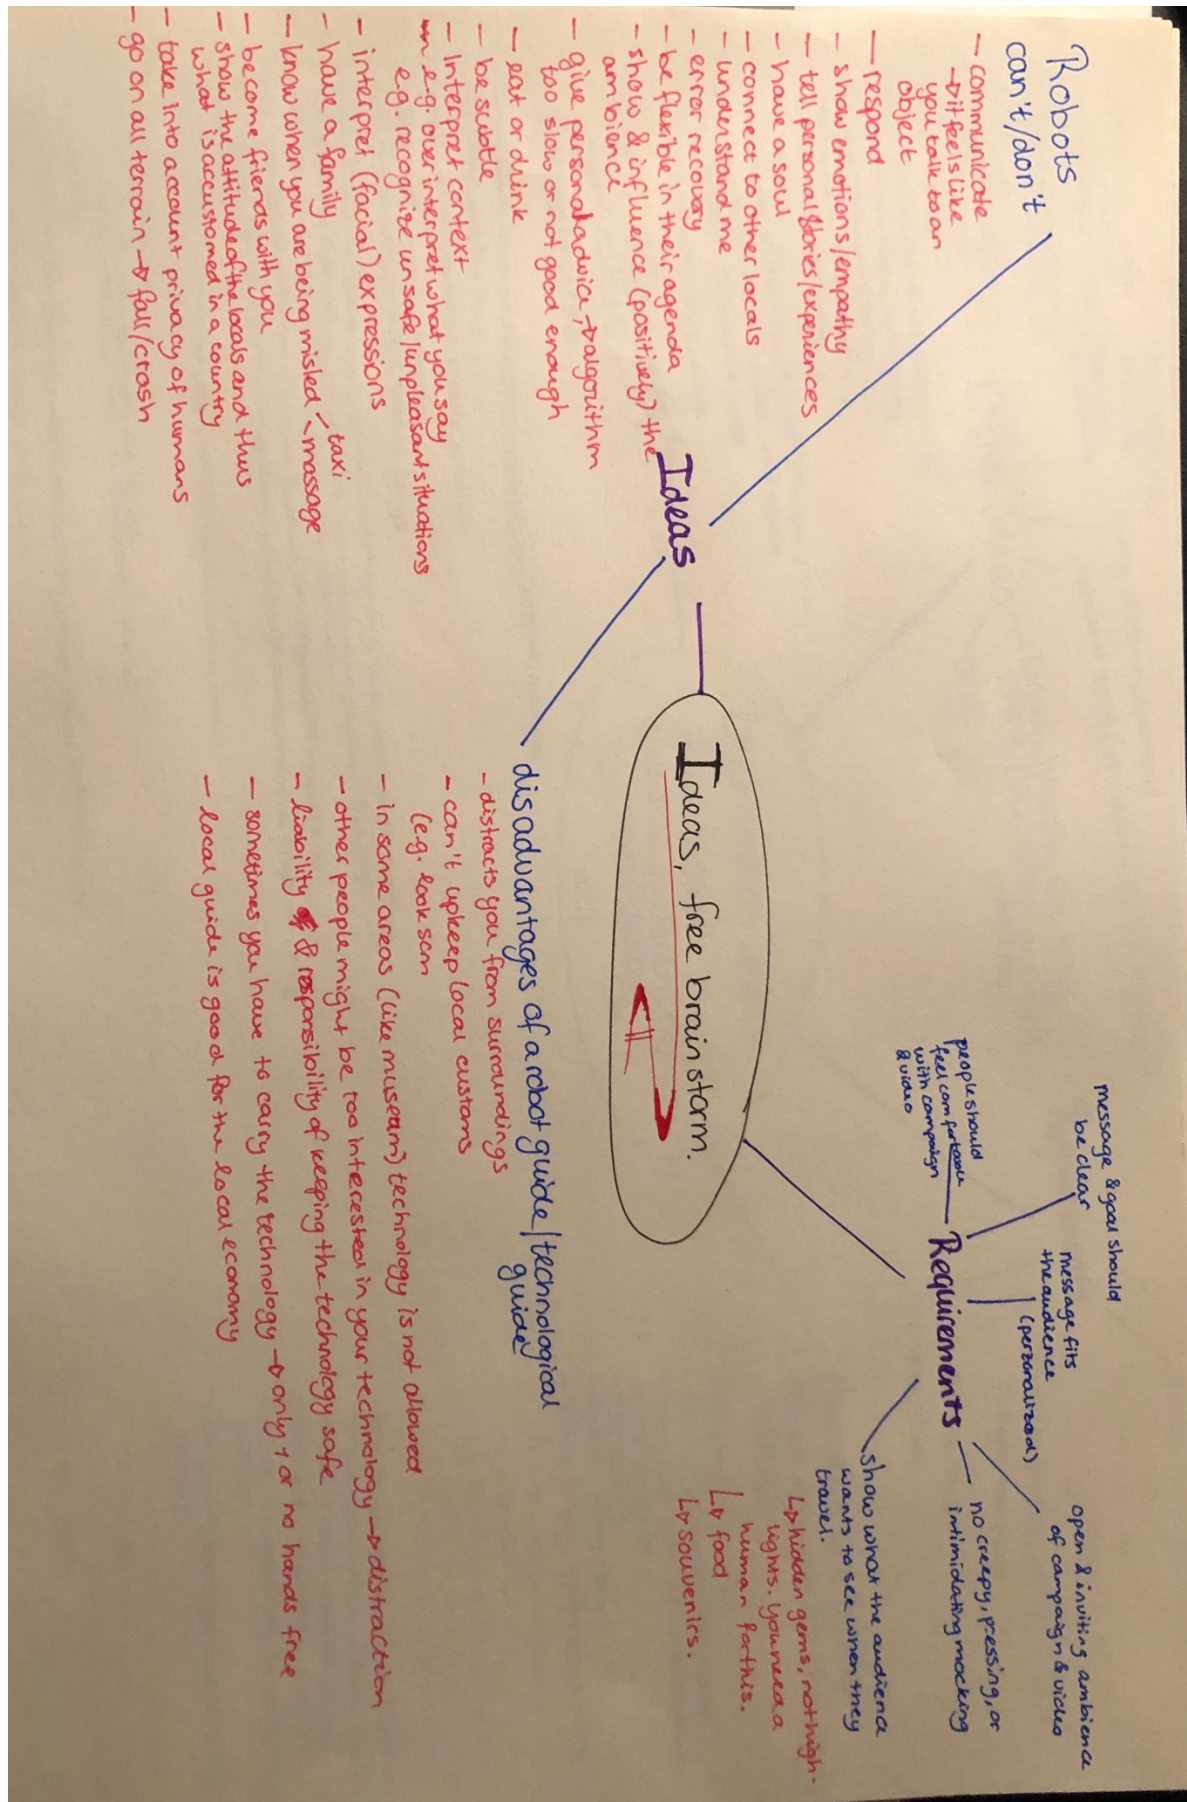 Robots
can't/don't
- communicate
→ it feels like
you talk to an
object
- respond
- show emotions/empathy
- tell personal stories/experiences
- have a soul
- connect to other locals
- understand me
- error recovery
- be flexible in their agenda
- show & influence (positively) the
ambience
- give personal advice, → algorithm
too slow or not good enough
- eat or drink
- be subtle
- Interpret context
e.g. over interpret what you say
e.g. recognize unsafe/unpleasant situations
- interpret (facial) expressions
- have a family
- know when you are being misled < taxi
massage
- become friends with you
- show the attitude of the locals and thus
what is accustomed in a country
- take into account privacy of humans
- go on all terrain → fall/crash
Ideas
Ideas, free brainstorm.
disadvantages of a robot guide/technological
guide
- distracts you from surroundings
- can't upkeep local customs
(e.g. look
- in some areas (like museam) technology is not allowed
- other people might be too interested in your technology → distraction
- liability & responsibility of keeping the technology safe
- sometimes you have to carry the technology → only 1 or no hands free
- local guide is good for the local economy
Requirements
message & goal should
be clear
people should
feel comfortable
with campaign
& video
message fits
the audience
(personalized)
open & inviting ambience
of campaign & video
no creepy, pressing, or
intimidating mocking
show what the audience
wants to see when they
travel.
↳ hidden gems, not high-
lights. you need a
human for this.
↳ food
↳ souvenirs.